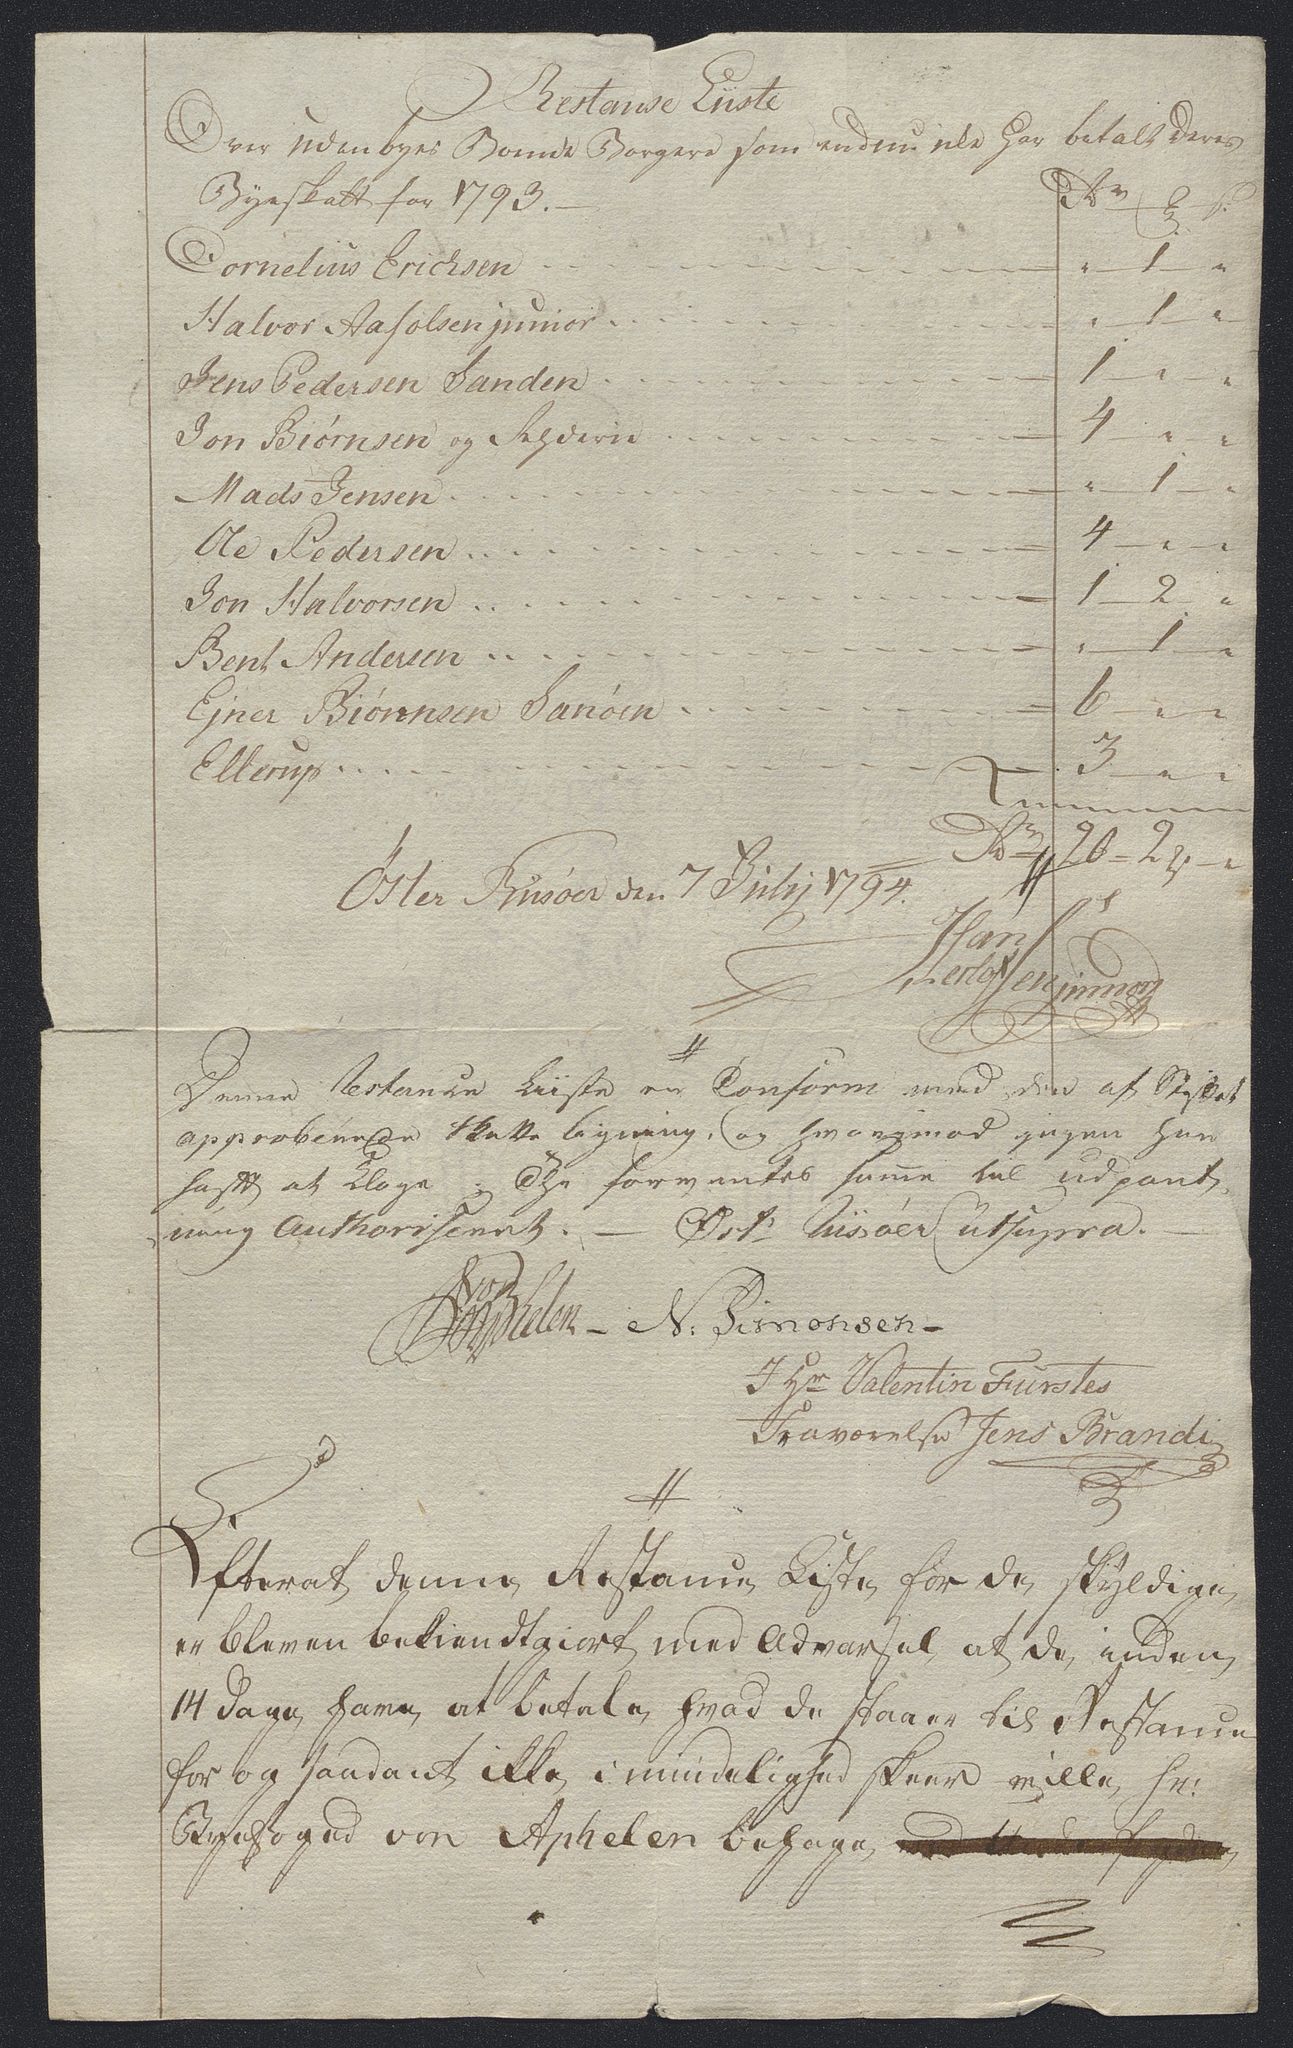 Restanse Liiste
Over udenbyes Boende Borgere som endnu icke har betalt deres
Byeskatt for 1793.—
Rdr — ß
Cornelius Ericksen — " 1 "
Halvor Aasolsen junior — " 1 "
Jens Pedersen Sanden — 1 " "
Jon Biørnsen og — 4 " "
Mads Jensen — " 1 "
Ole Pedersen — 4 " "
Jon Halvorsen — 1 2 "
Bent Andersen — " 1 "
Ejner Biørnsen Sanøen — 6 " "
Ellerup — 3 " "
Rdr 20 – 2 "
Øster Riisøer den 7 Julij 1794.
Hans
junior
Denne Restance Liiste er Conform med den af Stiftet
approberede Skatte ligning, og hvorimod ingen har
hafft at klage; Thi forventes samme til udpant-
ning Authoriseret. — Østr Riisøer ut supra. —
von Aphelen – N: Simonsen –
I Hr Valentin Fürstes
Fraværelse Jens Brandi
//
Efterat denne Restance Liste for de skyldige
er bleven bekiendtgiort med Advarsel at de inden
14 Dage have at betale hvad de staaer til Restance
for og saadant ikke i mindelighed skeer ville hr:
Byefoged von Aphelen behage